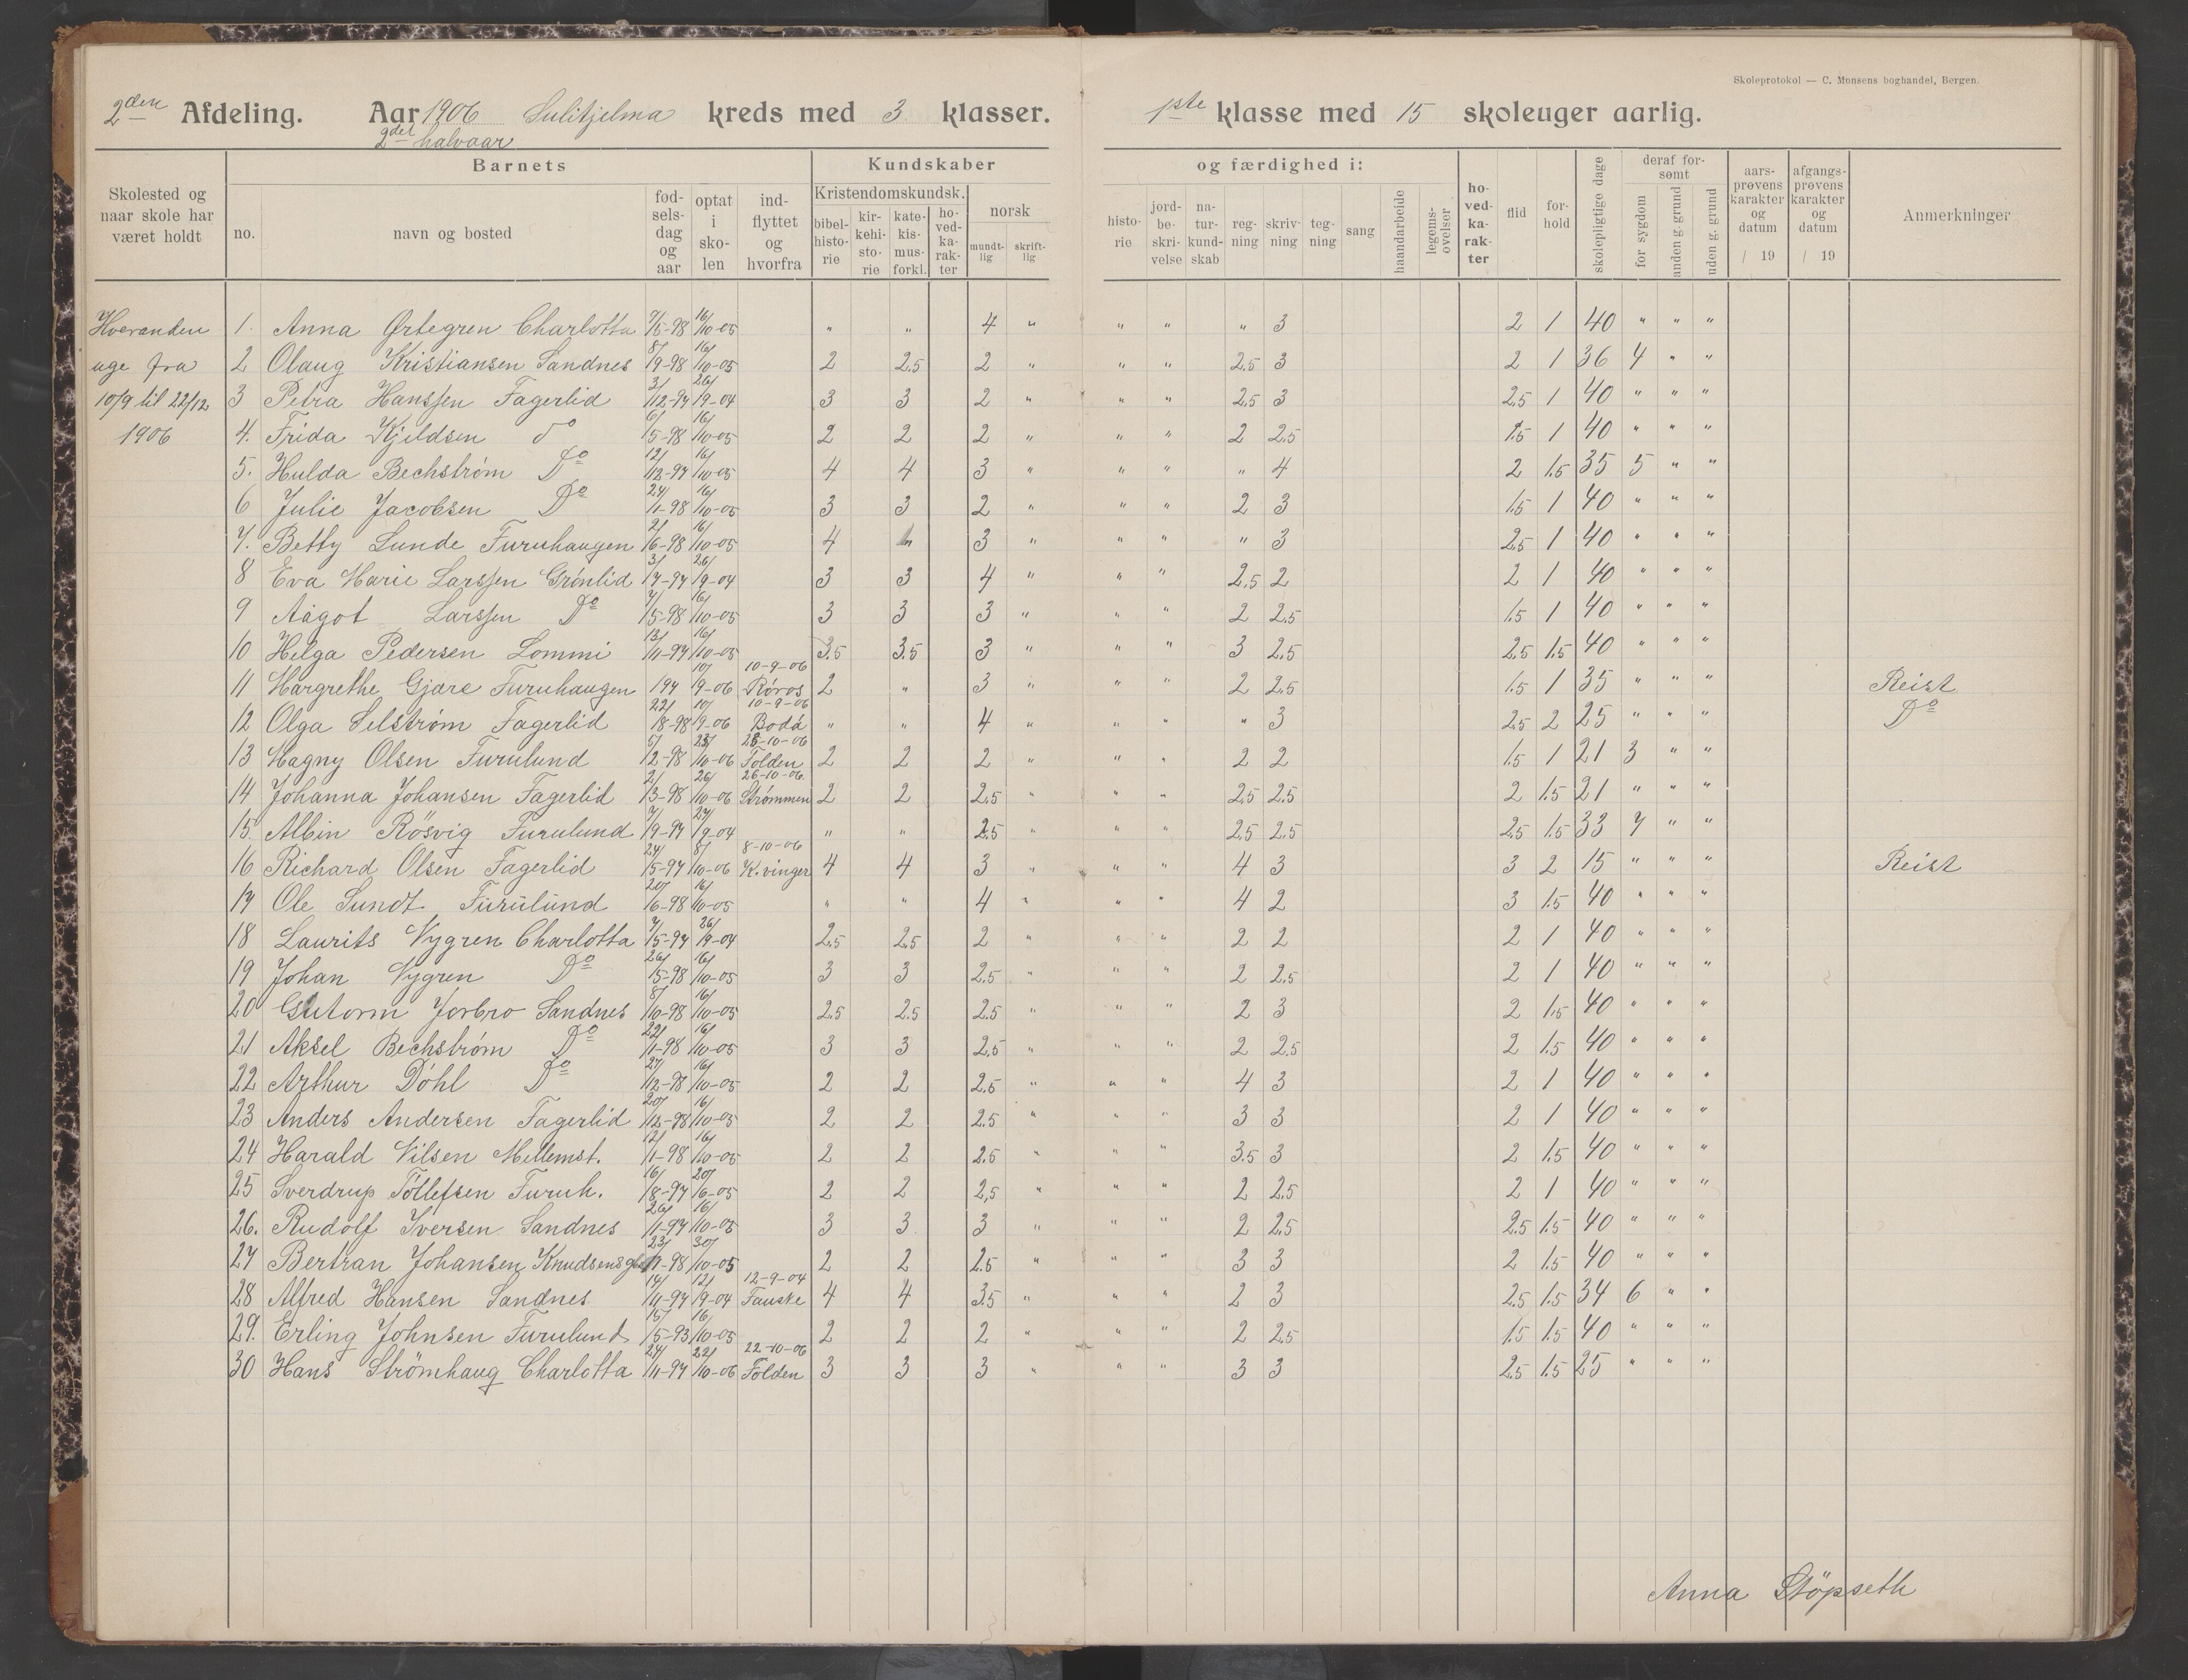 Skoleprotokol — C. Monsens boghandel, Bergen.
2den Afdeling. Aar 1906 Sulitjelma kreds med 3 klasser. 1ste klasse med 15 skoleuger aarlig.
2det halvaar
Barnets Kundskaber og færdighed i:
Skolested og naar skole har været holdt
no. navn og bosted
fødselsdag og aar
optat i skolen
indflyttet og hvorfra
Kristendomskundsk.
bibelhistorie kirkehistorie katekismusforkl. hovedkarakter
norsk
mundtlig skriftlig
historie jordbeskrivelse naturkundskab regning skrivning tegning sang haandarbeide legemsøvelser
hovedkarakter flid forhold skolepligtige dage
deraf forsømt
for sygdom anden g. grund uden g. grund
aarsprøvens karakter og datum / 19
afgangsprøvens karakter og datum / 19
Anmerkninger
Hveranden uge fra 10/9 til 22/12 1906
1. Anna Ørtegren Charlotta 7/5-98 16/10-05 " " 4 " " " " 3 2 1 40 " " "
2 Olaug Kristiansen Sandnes 8/9-98 16/10-05 2 2.5 2 " " " 2.5 3 2 1 36 4 " "
3 Petra Hanssen Fagerlid 3/12-97 26/9-04 3 3 2 " " " 2.5 3 2.5 1 40 " " "
4. Frida Kjeldsen do 6/5-98 16/10-05 2 2 2 " " " 2 2.5 1.5 1 40 " " "
5. Hulda Bechstrøm Do 12/12-97 16/10-05 4 4 3 " " " " 4 2 1.5 35 5 " "
6 Julie Jacobsen Do 24/1-98 16/10-05 3 3 2 " " " 2 3 1.5 1 40 " " "
7. Betty Lunde Furuhaugen 2/6-98 16/10-05 4 3 " " " " 3 2.5 1 40 " " "
8 Eva Marie Larssen Grønlid 3/7-97 26/9-04 3 3 4 " " " 2.5 2 2 1 40 " " "
9 Aagot Larssen Do 7/5-98 16/10-05 3 3 3 " " " 2 2.5 1.5 1 40 " " "
10 Helga Pedersen Lommi 13/11-97 16/10-05 3.5 3.5 3 " " " 3 2.5 2.5 1.5 40 " " "
11 Margrethe Gjære Furuhaugen 197 10/9-06 10-9-06 Røros 2 " 3 " " " 2 2.5 1.5 1 35 " " " Reist
12 Olga Selstrøm Fagerlid 22/8-98 10/9-06 10-9-06 Bodø " " 4 " " " " 3 2.5 2 25 " " " Do
13 Magny Olsen Furulund 5/2-98 25/10-06 25-10-06 Folden 2 2 2 " " " 2 2 1.5 1 21 3 " "
14 Johanna Johansen Fagerlid 2/3-98 26/10-06 26-10-06 Strømmen 2 2 2.5 " " " 2.5 2.5 2 1.5 21 " " "
15. Albin Rösvig Furulund 7/9-97 27/9-04 " " 2.5 " " " 2.5 2.5 2.5 1.5 33 7 " "
16 Richard Olsen Fagerlid 24/5-97 8/10-06 8-10-06 K.vinger 4 4 3 " " " 4 3 3 2 15 " " " Reist
17 Ole Sundt Furulund 20/6-98 16/10-05 " " 4 " " " 4 2 3 1.5 40 " " "
18 Laurits Nygren Charlotta 7/5-97 26/9-04 2.5 2.5 2 " " " 2 2 2 1 40 " " "
19 Johan Nygren Do 26/5-98 16/10-05 3 3 2.5 " " " 2 2.5 2 1 40 " " "
20 Guttorm Jorbro Sandnes 8/10-98 16/10-05 2.5 2.5 2.5 " " " 2 3 2 1.5 40 " " "
21 Aksel Bechstrøm Do 22/1-98 16/10-05 3 3 2.5 " " " 2 2.5 2 1.5 40 " " "
22 Arthur Döhl Do 27/12-98 16/10-05 2 2 2.5 " " " 4 3 2 1 40 " " "
23 Anders Andersen Fagerlid 20/12-98 16/10-05 2 2 2.5 " " " 3 3 2 1 40 " " "
24 Harald Nilsen Mellemst. 12/1-98 16/10-05 2 2 2.5 " " " 3.5 3 2 1.5 40 " " "
25 Sverdrup Tollefsen Furuh. 16/8-97 20/6-05 2 2 2,5 " " " 2 2.5 2 1 40 " " "
26. Rudolf Iversen Sandnes 26/11-97 16/10-05 3 3 3 " " " 2 2.5 2.5 1.5 40 " " "
27 Bertran Johansen 23/1-98 30/10-05 2 2 2.5 " " " 3 3 2 1.5 40 " " "
28 Alfred Hansen Sandnes 14/11-97 12/9-04 12-9-04 Fauske 4 4 3.5 " " " 2 3 2.5 1.5 34 6 " "
29. Erling Johnsen Furulund 15/5-93 16/10-05 2 2 2 " " " 2 2.5 1.5 1.5 40 " " "
30 Hans Strömhaug Charlotta 24/11-97 22/10-06 22-10-06 Folden 3 3 3 " " " 3 3 2.5 1.5 25 " " "
Anna Støpseth